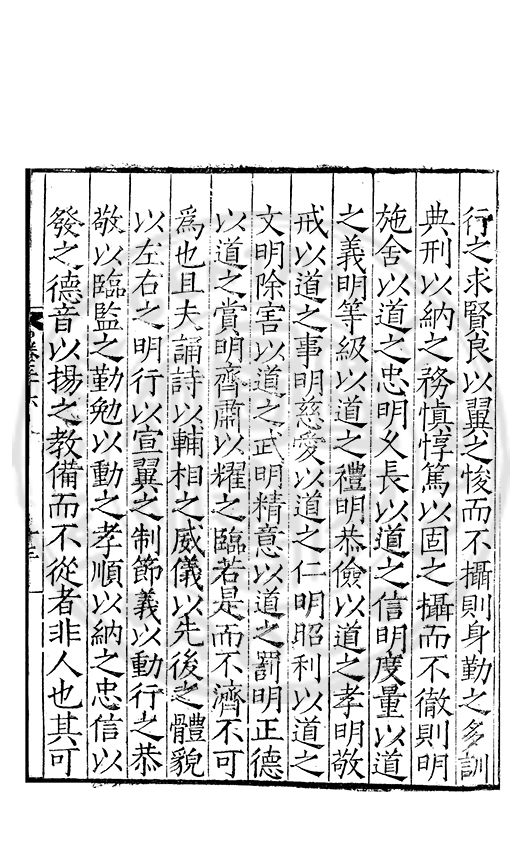 行之求賢良以翼之悛而不攝則身勤之多訓
典刑以納之務愼惇篤以固之攝而不徹則明
施舍以道之忠明久長以道之信明度量以道
之義明等級以道之禮明恭儉以道之孝明敬
戒以道之事明慈愛以道之仁明昭利以道之
文明除害以道之武明精意以道之罰明正德
以道之賞明齊肅以耀之臨若是而不濟不可
爲也且夫誦詩以輔相之威儀以先後之體貌
以左右之明行以宣翼之制節義以動行之恭
敬以臨監之勤勉以動之孝順以納之忠信以
發之德音以揚之教備而不從者非人也其可